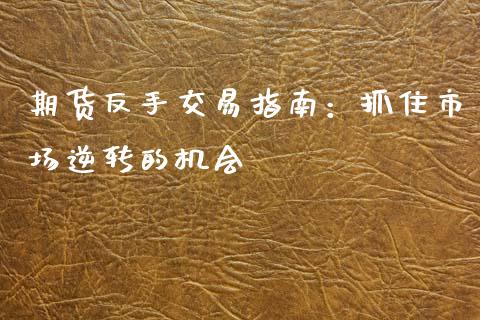 期货反手交易指南：抓住市
场逆转的机会